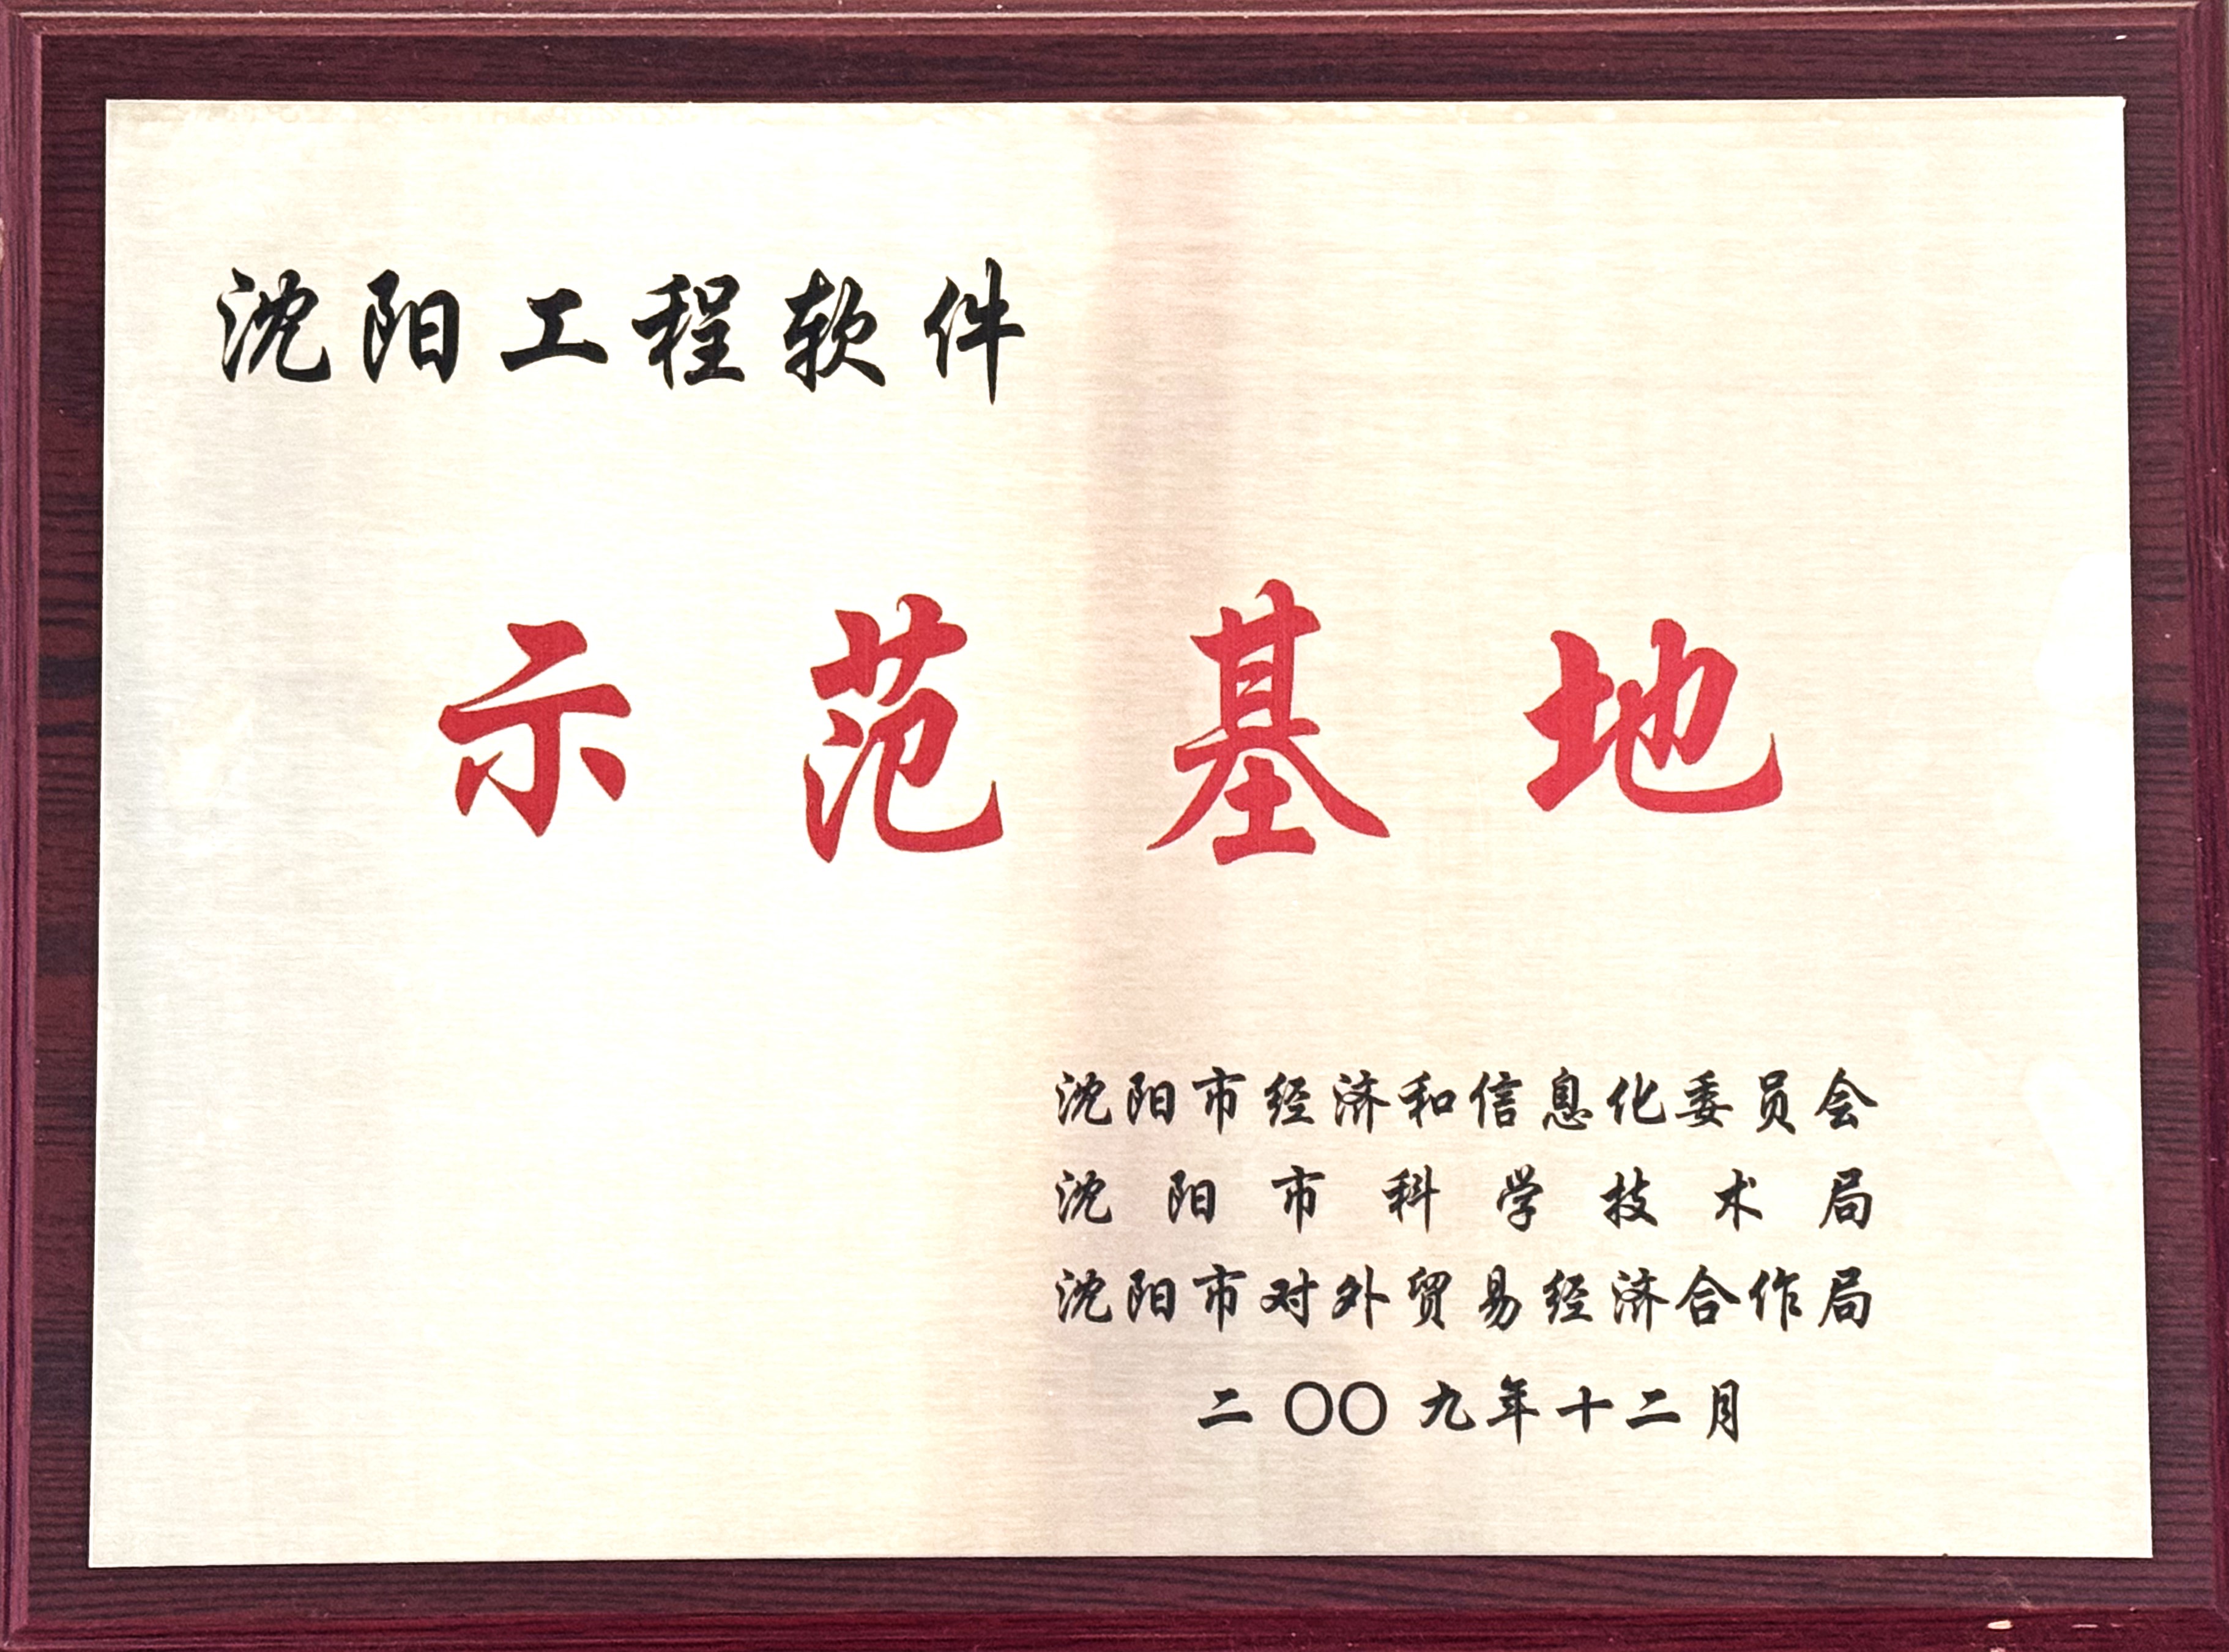 沈阳工程软件
示范基地
沈阳市经济和信息化委员会
沈阳市科学技术局
沈阳市对外贸易经济合作局
二〇〇九年十二月